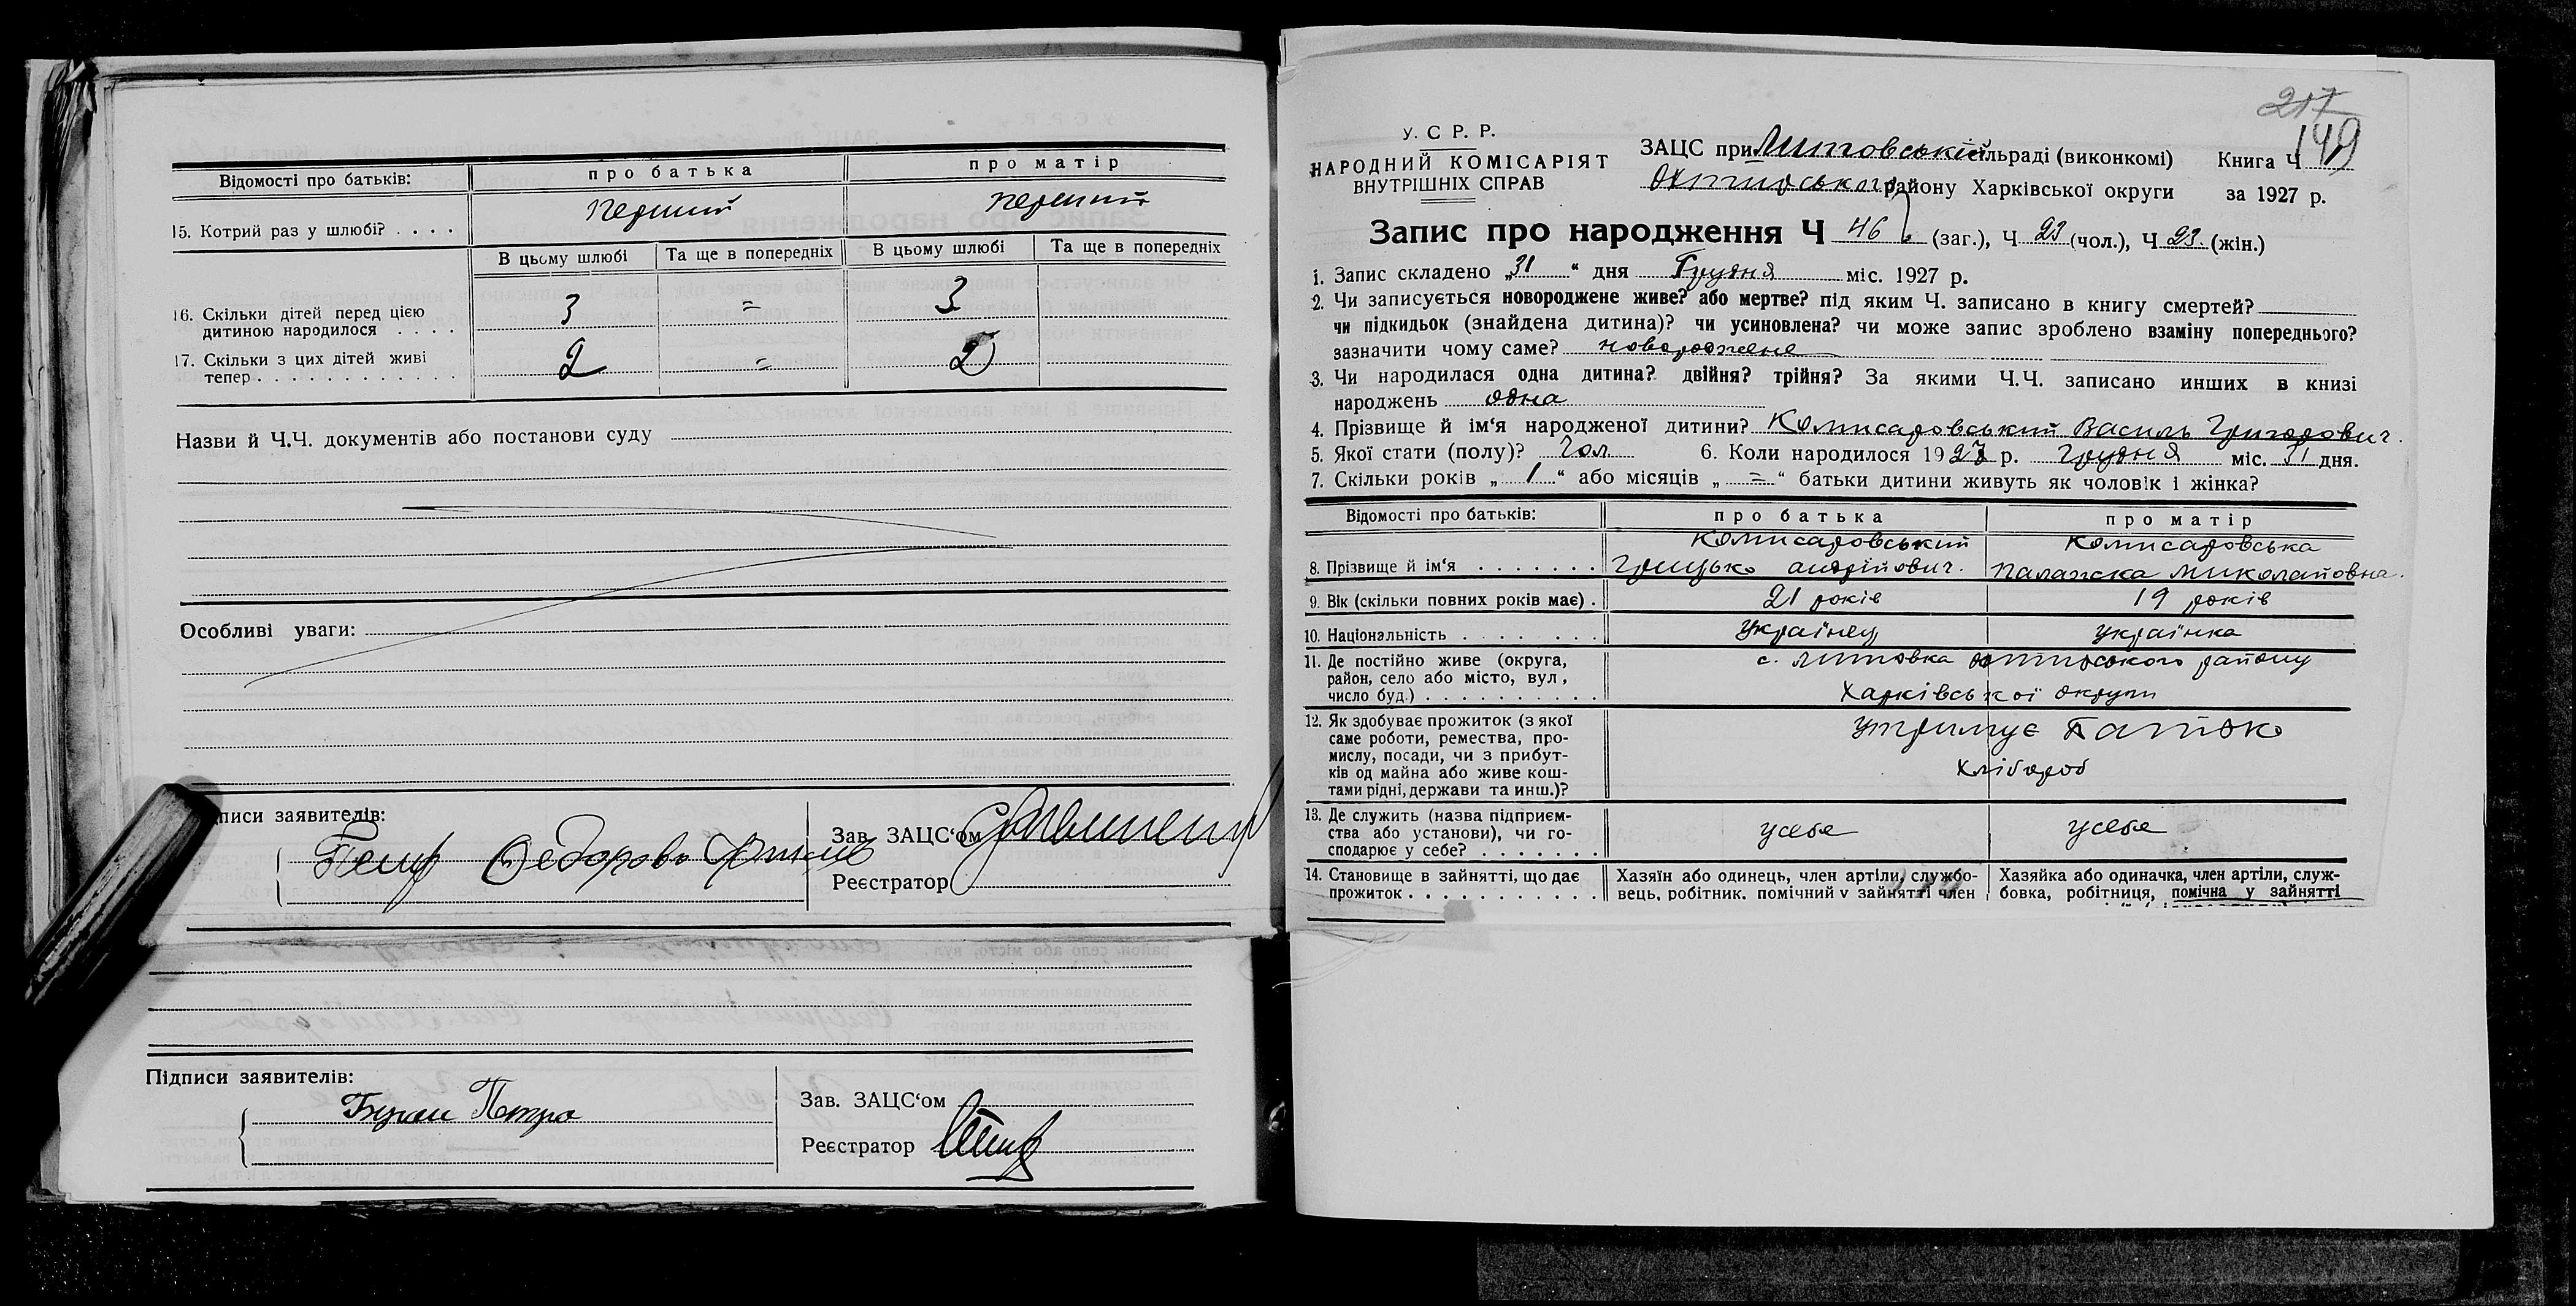 Відомості про батьків: про батька про матір
15. Котрий раз у шлюбі? . . . . перший перший
В цьому шлюбі Та ще в попередніх В цьому шлюбі Та ще в попередніх
16. Скільки дітей перед цією
дитиною народилося . . . . 3 = 3
17. Скільки з цих дітей живі
тепер . . . . . . . . . . . . 2 = 2
Назви й Ч.Ч. документів або постанови суду
Особливі уваги:
писи заявителів:
Зав. ЗАЦС‘ом
Реєстратор
Підписи заявителів:
Петро
Зав. ЗАЦС‘ом
Реєстратор
217
149
У. С Р. Р.
НАРОДНИЙ КОМІСАРІЯТ
ВНУТРІШНІХ СПРАВ
ЗАЦС при Литовській сільраді (виконкомі) Книга Ч
району Харківської округи за 1927 р.
Запис про народження Ч 46 (заг.), Ч 23 (чол.), Ч 23 (жін.)
1. Запис складено „31“ дня Грудня міс. 1927 р.
2. Чи записується новороджене живе? або мертве? під яким Ч. записано в книгу смертей?
чи підкидьок (знайдена дитина)? чи усиновлена? чи може запис зроблено взаміну попереднього?
зазначити чому саме? новороджене
3. Чи народилася одна дитина? двійня? трійня? За якими Ч.Ч. записано инших в книзі
народжень одна
4. Прізвище й ім‘я народженої дитини? Комисаровський Василь Григорович.
5. Якої стати (полу)? Чол 6. Коли народилося 1927 р. Грудня міс. 31 дня.
7. Скільки років „1“ або місяців „=“ батьки дитини живуть як чоловік і жінка?
Відомості про батьків: про батька про матір
Комисаровський Комисаровська
8. Прізвище й ім‘я . . . . . . . Грицько андрійович. палажка миколайовна.
9. Вік (скільки повних років має) . 21 років 19 років
10. Національність . . . . . . . . Українец українка
11. Де постійно живе (округа, с. литовка району
район, село або місто, вул,
число буд.) . . . . . . . . . . Харківської округи
12. Як здобуває прожиток (з якої утримує Батько
саме роботи, ремества, про-
мислу, посади, чи з прибут- Хлібороб
ків од майна або живе кош-
тами рідні, держави та инш.)?
13. Де служить (назва підприєм-
ства або установи), чи го- усебе усебе
сподарює у себе? . . . . . . .
14. Становище в зайнятті, що дає Хазяїн або одинець, член артіли, службо- Хазяйка або одиначка, член артіли, служ-
прожиток . . . . . . . . . . . вець, робітник, помічний у зайнятті член бовка, робітниця, помічна у зайнятті